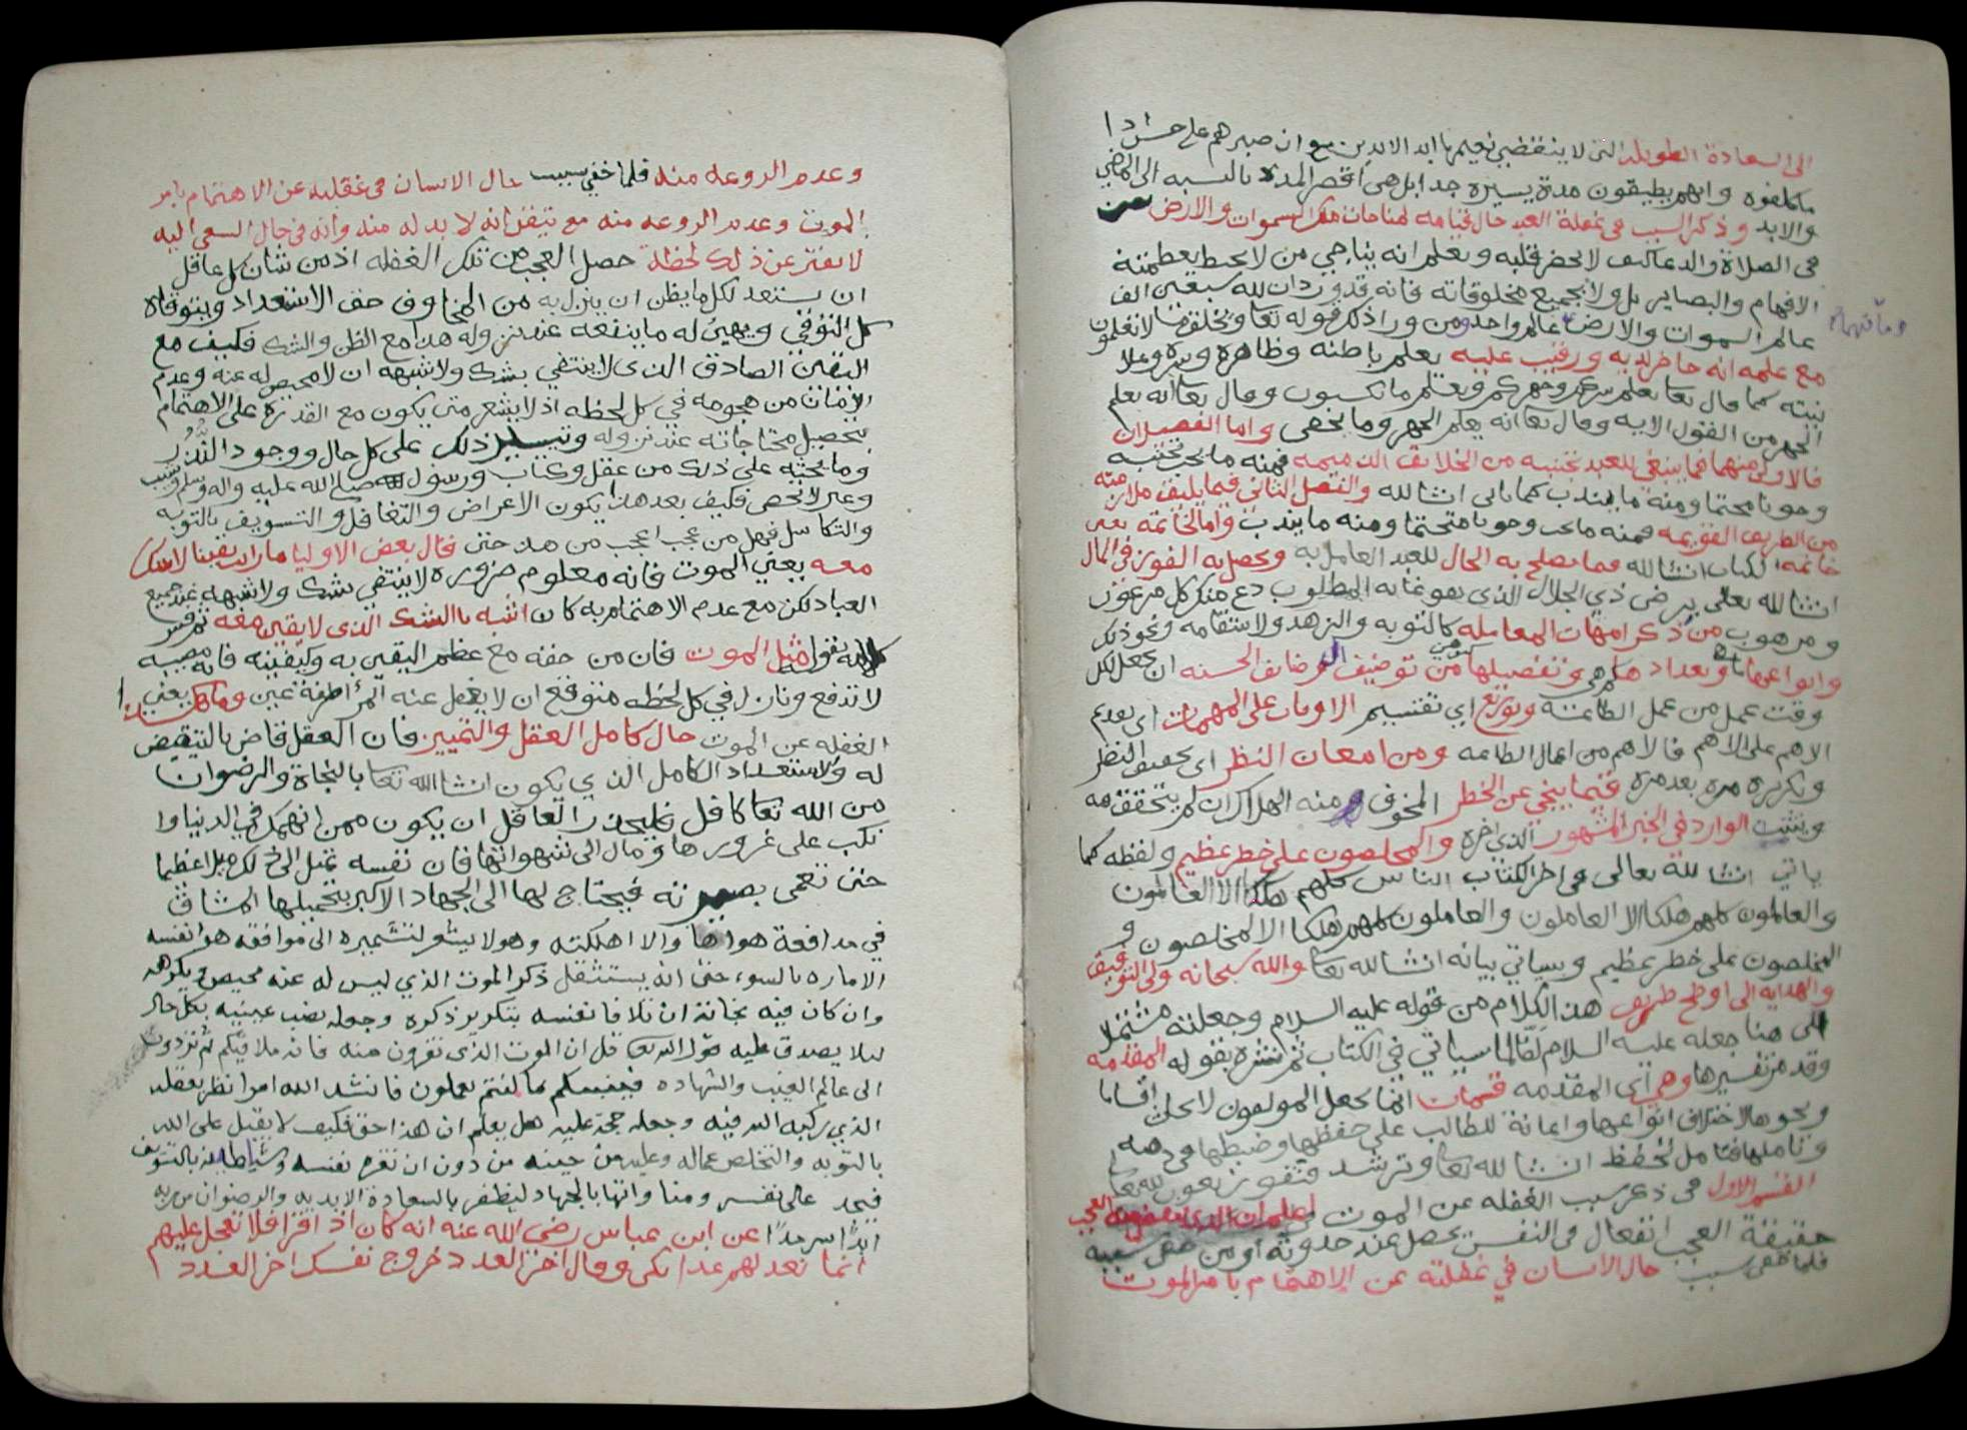 الى السعادة الطويله التى لا ينقضي نعيمها ابد الابدين مع ان صبرهم على
ما كلفوه وانهم يطيقون مدة يسيرة جدا بل هي اقصر المدة بالنسبه الى
والابد وذكر السبب فى غفلة العبد حال قيامه لمناجات ملك السموات والارض
فى الصلاة والدعا كيف لا يحضر قلبه ويعلم انه يناجي من لا يحيط بعظمته
الافهام والبصاير بل ولا بجميع مخلوقاته فانه قد ورد ان لله سبعين الف
عالم السموات والارض عالم واحد ومن ورا ذلك قوله تعا ويخلق ما لا تعلمون
مع علمه انه حاضر لديه ورقيب عليه يعلم باطنه وظاهره وسره وعلا
نيته كما قال تعا يعلم سركم وجهركم ويعلم ما تكسبون وقال تعا انه يعلم
الجهر من القول الايه وقال تعا انه يعلم الجهر وما يخفى واما الفصلان
فالاول منهما فيما ينبغي للعبد تجنبه من الخلايق الذميمه فمنه ما يجب تجنبه
وجوبا محتما ومنه ما يندب كما ياتى انشا لله والفصل الثاني فيما يليق ملازمته
من الطريق القويمه فمنه ما يجب وجوبا متحتما ومنه ما يندب واما الخاتمه يعني
خاتمه الكتاب انشا لله فما يصلح به الحال للعبد العامل به ويحصل به الفوز في المال
انشا لله تعالى برضى ذي الجلال الذي هو غايه المطلوب
ومرهوب من ذكر امهات المعامله كالتوبه والزهد والاستقامه ونحو ذلك
وانواعها وتعداد ما هي وتفصيلها من توضيف الوضايف الحسنه ان يجعل لكل
وقت عمل من عمل الطاعة وتوزيع اي تقسيم الاوقات على المهمات اى يقدم
الاهم على الاهم فالاهم من اعمال الطاعه ومن امعان النظر اى تحقيق النظر
وتكريره مره بعد مره فيما ينجي عن الخطر المخوف منه الهلاك ان لم يتحققه
ويتثبت الوارد في الخبر المشهور الذي اخره والمخلصون على خطر عظيم ولفظه كما
ياتي انشا لله تعالى فى اخر الكتاب الناس كلهم هلكا الا العالمون
والعالمون كلهم هلكا الا العاملون والعاملون كلهم هلكا الا المخلصون و
المخلصون على خطر عظيم وسياتي بيانه انشا لله تعا والله سبحانه ولى التوفيق
والهدايه الى اوضح طريق هذا الكلام من قوله عليه السلام وجعلته مشتملا
الى هنا جعله عليه السلام لفا لما سياتي في الكتاب ثم نشره بقوله المقدمه
وقد مر تفسيرها وهي اى المقدمه قسمان انما يجعل المولفون اقساما
ونحوها لاختلاف انواعها واعانة للطالب على حفظها وضبطها فى ذهنه
وتاملها فتامل تحفظ انشا لله تعا وترشد وتفوز بعون لله تعا
القسم الاول فى ذكر سبب الغفله عن الموت
حقيقة العجب انفعال فى النفس يحصل عند حدوثه امر من خفى سببه
فلما خفى سبب حال الانسان في غفلته عن الاهتمام بامر الموت
وعدم الروعه منه فلما خفي سبب حال الانسان فى غفلته عن الاهتمام بامر
الموت وعدم الروعه منه مع تيقن انه لا بد له منه وانه فى حال السعي اليه
لا يفتر عن ذلك لحظة حصل العجب من تلك الغفله اذ من شان كل عاقل
ان يستعد لكل ما يظن ان ينزل به من المخاوف حق الاستعداد ويتوقاه
كل التوقي ويهيئ له ما ينفعه عند نزوله هذا مع الظن والشك فكيف مع
اليقين الصادق الذى لا ينتفي بشك ولا شبهه ان لا محيص له عنه وعدم
الامان من هجومه في كل لحظه اذ لا يشعر متى يكون مع القدره على الاهتمام
بتحصيل محتاجاته عند نزوله وتيسير ذلك على كل حال ووجود النذر
وما يحثه على ذلك من عقل وكتاب ورسول صلى الله عليه واله وسلم
وعبر لا تحصى فكيف بعد هذا يكون الاعراض والتغافل والتسويف بالتوبه
والتكاسل فهل من عجب اعجب من هذا حتى قال بعض الاوليا ما رايت يقينا لا شك
معه يعني الموت فانه معلوم ضروره لا ينتفي بشك ولا شبهه عند جميع
العباد لكن مع عدم الاهتمام به كان اشبه بالشك الذى لا يقين معه ثم فسر
كلامه بقوله مثل الموت فان من حقه مع عظم اليقين به وكيفيته فانه مصيبه
لا تدفع ونازل في كل لحظه متوقع ان لا يغفل عنه المرأ طرفة عين وما يعني
الغفله عن الموت حال كامل العقل والتمييز فان العقل قاض بالتيقيض
له والاستعداد الكامل الذي يكون انشا الله تعا بالنجاة والرضوان
من الله تعا كافل فليحذر العاقل ان يكون ممن انهمك في الدنيا وا
نكب على غرورها ومال الى شهواتها فان نفسه تميل الى ذلك ميلا عظيما
حتى تعمى بصيرته فيحتاج لها الى الجهاد الاكبر بتحميلها المشاق
في مدافعة هواها والا اهلكته وهو لا يشعر لتشميره الى موافقه هوا نفسه
الاماره بالسوء حتى انه يستثقل ذكر الموت الذي ليس له عنه محيص ويكرهه
وان كان فيه نجاته ان تلافا نفسه بتكرير ذكره وجعله نصب عينيه بكل حال
ليلا يصدق عليه قول الله تعا قل ان الموت الذى تفرون منه فانه ملاقيكم ثم تردون
الى عالم الغيب والشهاده فينبئكم بما كنتم تعملون فانشد الله امرا نظر بعقله
الذي ركبه الله فيه وجعله حجة عليه هل يعلم ان هذا حق فكيف لا يقبل على الله
بالتوبه والتخلص مما له وعليه من حينه من دون ان تغره نفسه وشياطينه بالتسويف
فيجد على نفسه ومنا وانها بالجهاد ليظفر بالسعادة الابديه والرضوان من ربه
ابدًا سرمدًا عن ابن عباس رضى الله عنه انه كان اذا قرا فلا تعجل عليهم
انما نعد لهم عدا بكى وقال اخر العدد خروج نفسك اخر العدد